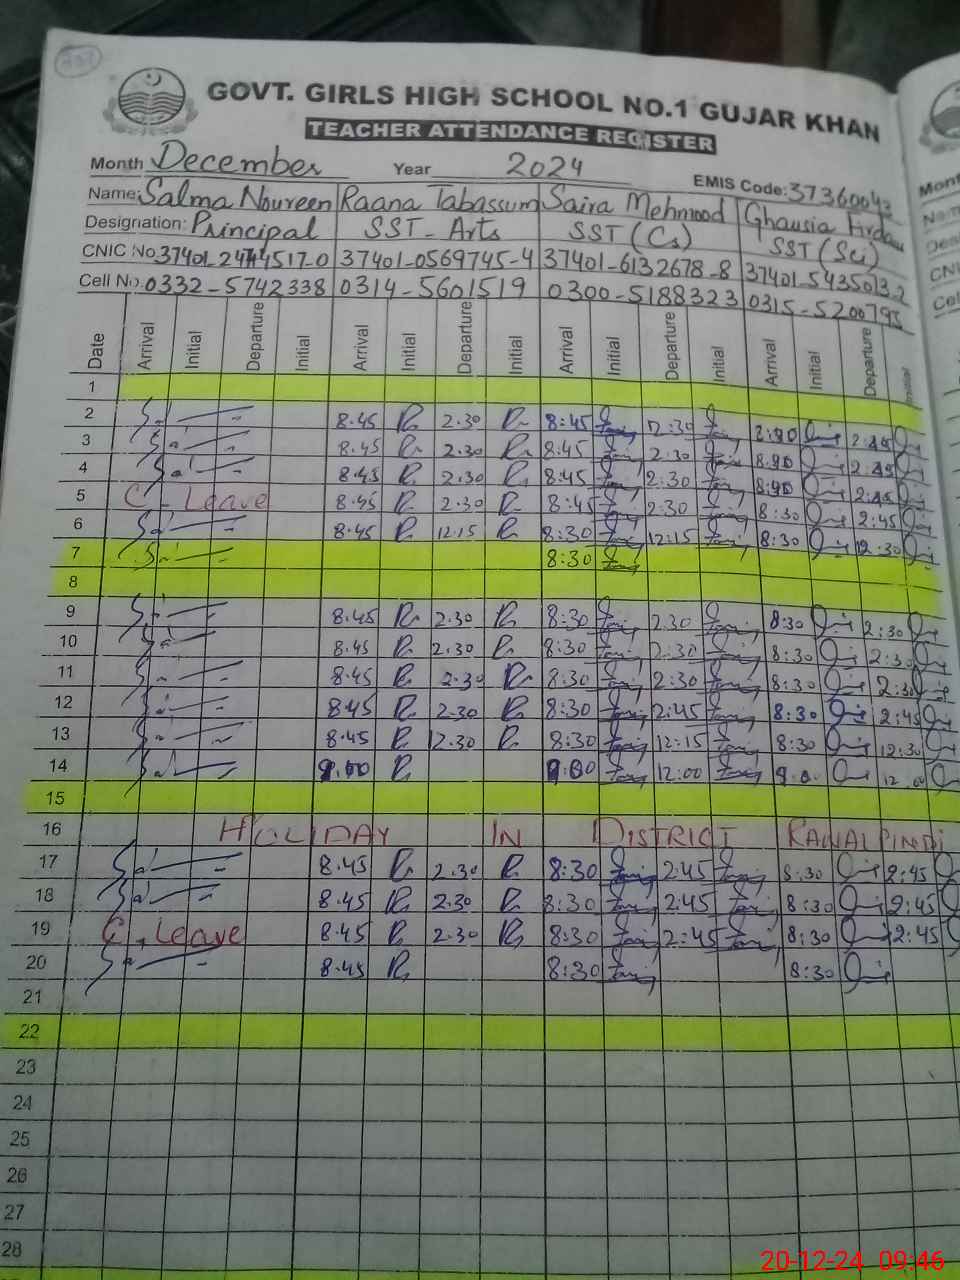 GOVT. GIRLS HIGH SCHOOL NO.1 GUJAR KHAN
TEACHER ATTENDANCE REGISTER
Month December Year 2024 EMIS Code:
Name: Salma Noureen Raana Tabassum Saira Mehmood Ghausia
Designation: Principal SST-Arts SST (Cs) SST (Sci)
CNIC No. 37401-0569745-4 37401-6132678-8
Cell No. 0332-5742338 0314-5601519 0300-5188323
Date Arrival Initial Departure Initial Arrival Initial Departure Initial Arrival Initial Departure Initial Arrival Initial Departure Initial
1
2 8.45 2.30 8:45 2:30
3 8.45 2.30 8:45 2:30
4 8.45 2.30 8:45 2:30
5 C-Leave 8.45 2.30 8:45 2:30 8:30 2:45
6 8.45 12.15 8:30 12:15 8:30 12:30
7 8:30
8
9 8.45 2.30 8:30 2:30 8:30 2:30
10 8.45 2.30 8:30 2:30 8:30 2:30
11 8.45 2.30 8:30 2:30 8:30 2:30
12 8.45 2.30 8:30 2:45 8:30 2:45
13 8.45 12.30 8:30 12:15 8:30 12:30
14 9.00 9:00 12:00 9:00 12:00
15
16 HOLIDAY IN DISTRICT RAWALPINDI
17 8.45 2.30 8:30 2:45 8:30 2:45
18 8.45 2.30 8:30 2:45 8:30 2:45
19 C. Leave 8.45 2.30 8:30 2:45 8:30 2:45
20 8.45 8:30 8:30
21
22
23
24
25
26
27
28
20-12-24 09:46